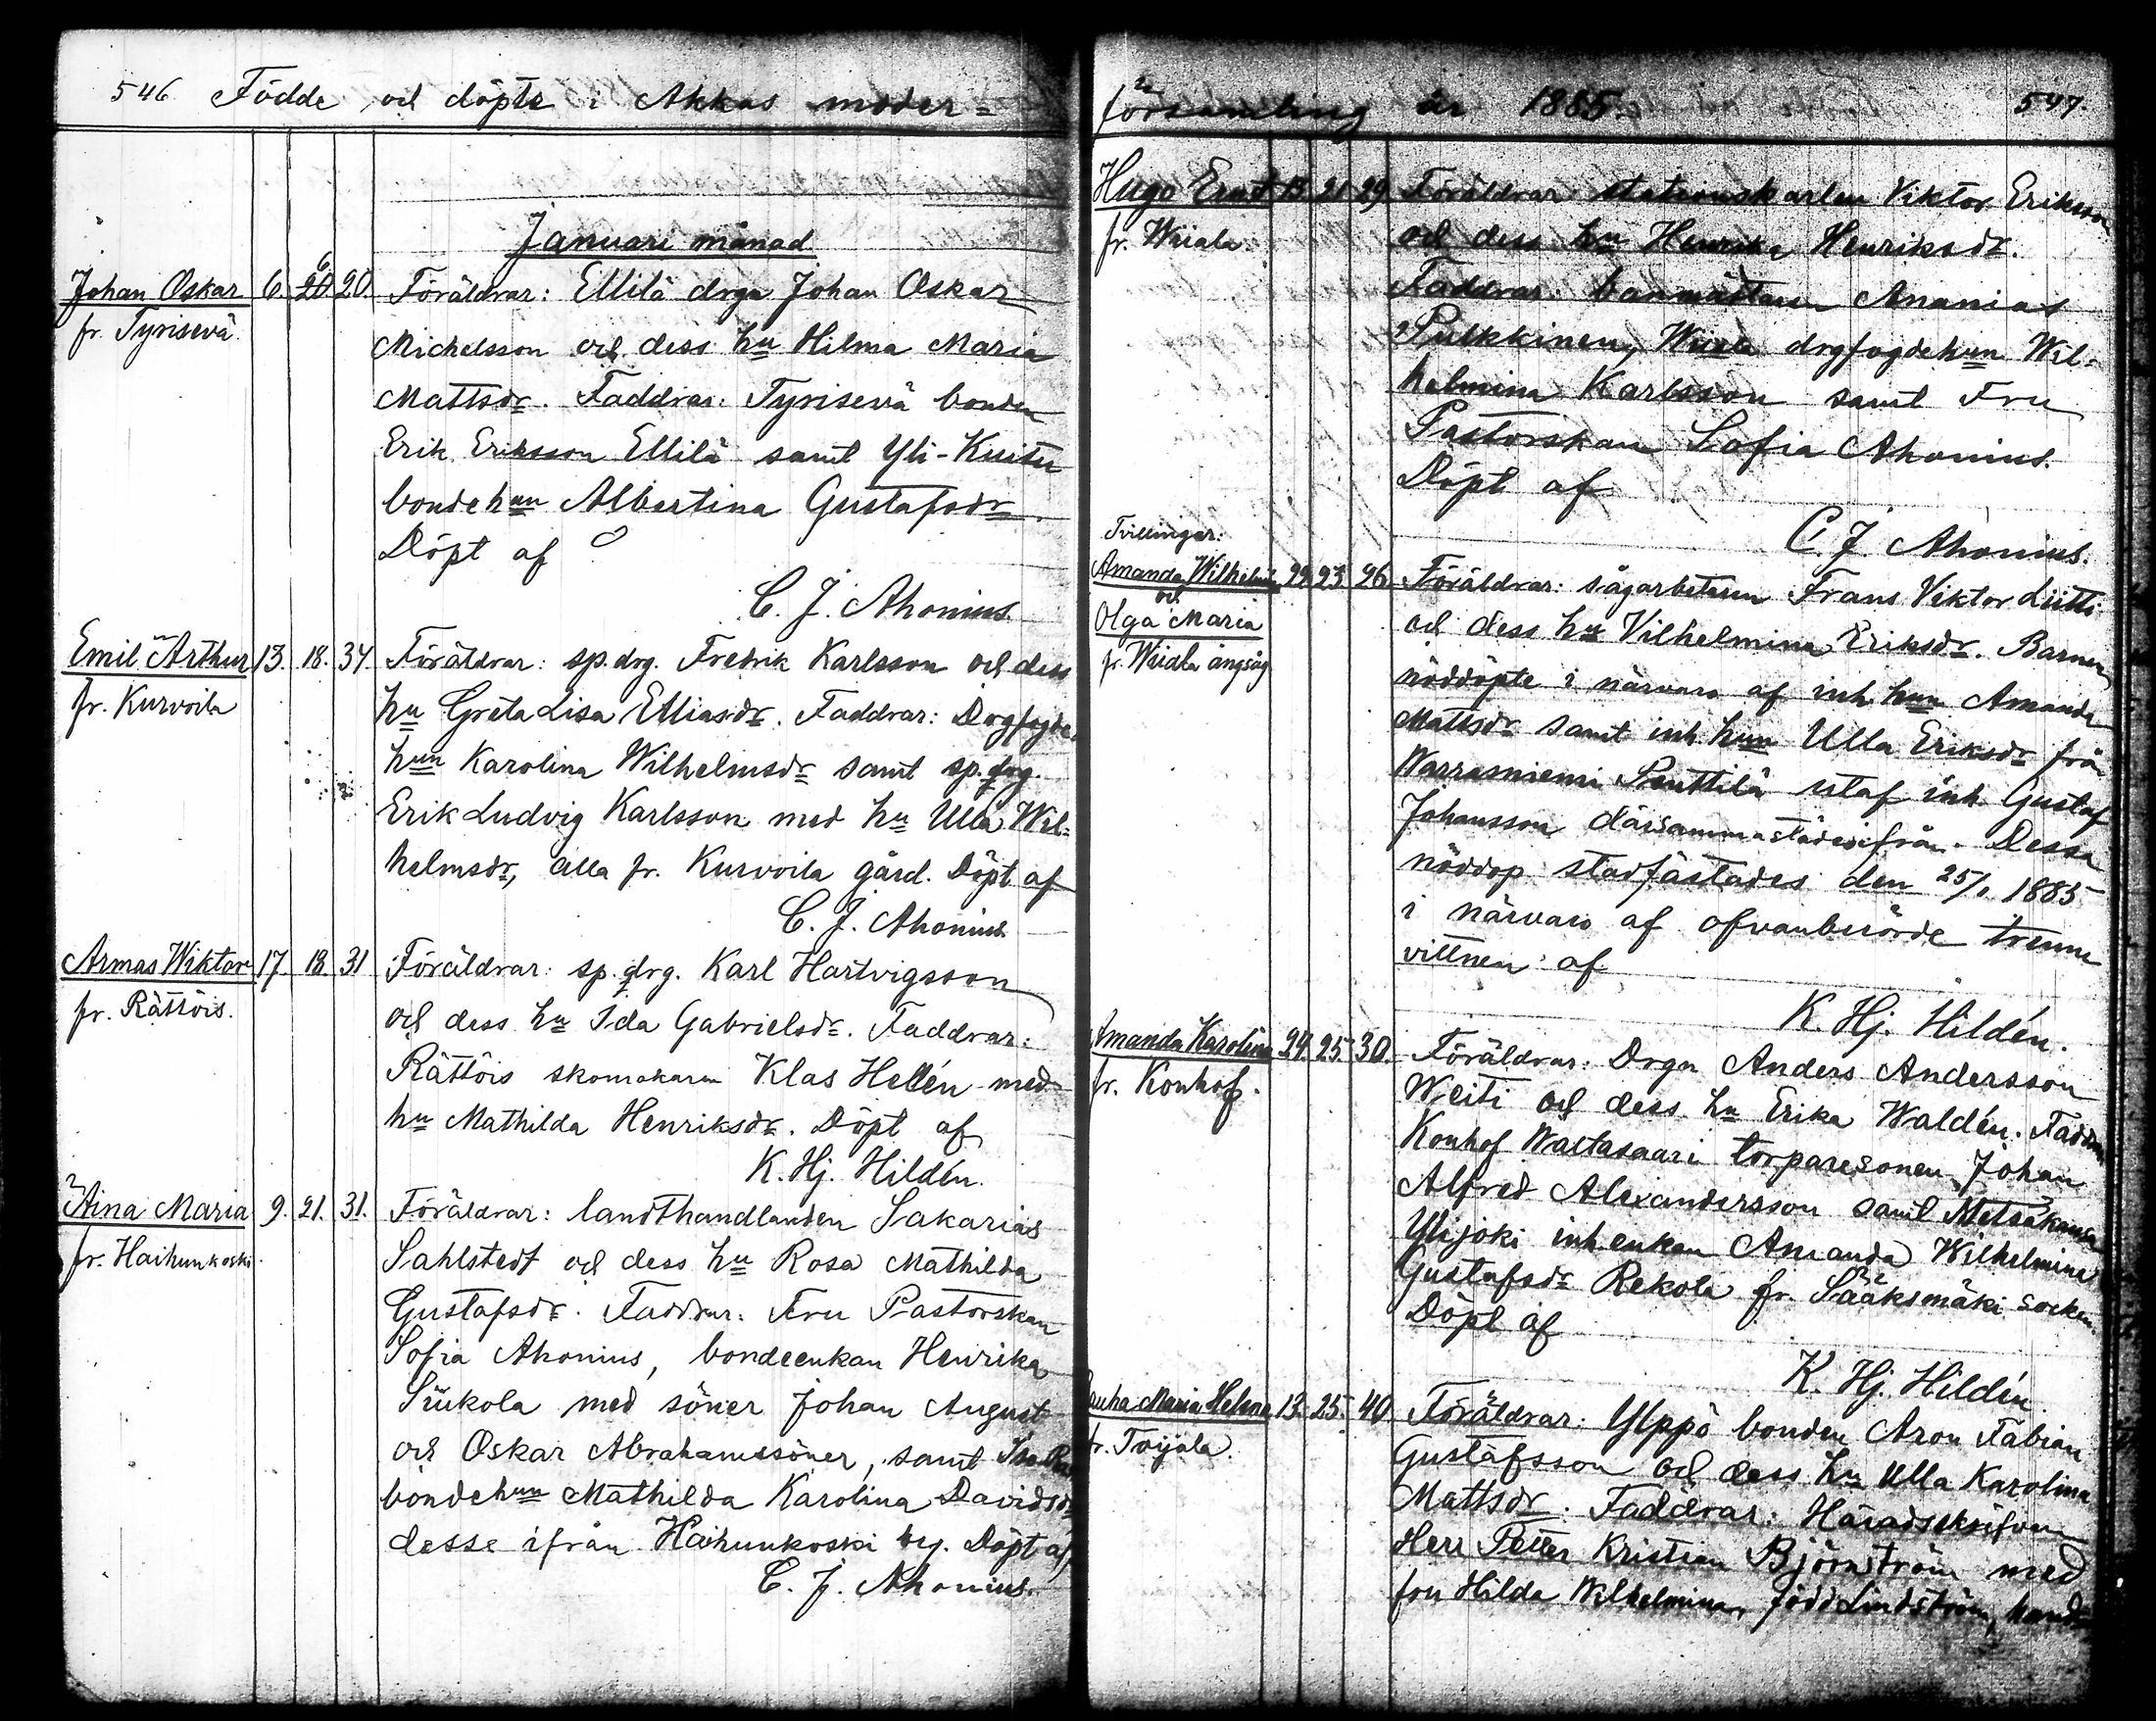 546 Födde och döpte i Akkas moder=
Januari månad
Johan Oskar 6. 20. 6 20. Föräldrar: Ellilä drga Johan Oskar
fr. Tyrisevä. Michelsson och dess hu Hilma Maria
Mattsdr. Faddrar: Tyrisevä bonden
Erik Eriksson Ellilä samt Yli-Kuitu
bondehun Albertina Gustafsdr
Döpt af
C. J. Ahonius.
Emil Arthur 13. 18. 34. Föräldrar: sp.drg. Fredrik Karlsson och dess
fr. Kurvoila hu Greta Lisa Elliasdr. Faddrar: Drgfogde
hun Karolina Wilhelmsdr samt sp.drg.
Erik Ludvig Karlsson med hu Ulla Wil=
helmsdr, alla fr. Kurvoila gård. Döpt af
C. J. Ahonius
Armas Wiktor 17. 18. 31 Föräldrar: sp.drg. Karl Hartvigsson
fr. Rättöis. och dess hu Ida Gabrielsdr. Faddrar:
Rättöis skomakaren Klas Hellén med
hu Mathilda Henriksdr. Döpt af
K. Hj. Hildén.
Aina Maria 9. 21. 31. Föräldrar: landthandlanden Sakarias
fr. Haihunkoski. Sahlstedt och dess hu Rosa Mathilda
Gustafsdr. Faddrar: Fru Pastorskan
Sofia Ahonius, bondeenkan Henrika
Siukola med söner Johan August
och Oskar Abrahamssöner, samt
bondehun Mathilda Karolina Davidsdr
desse ifrån Haihunkoski by. Döpt af
C. J. Ahonius.
församling år 1885. 547.
Hugo Ernst 13. 21. 29. Föräldrar: stationskarlen Viktor Eriksson
fr. Wiiala. och dess hu Henrika Henriksdr.
Faddrar: banmästaren Ananias
Pulkkinen, Wiiala drgfogdehun Wil-
helmina Karlsson samt Fru
Pastorskan Sofia Ahonius.
Döpt af
C. J. Ahonius.
Tvillingar:
Amanda Wilhelmina 22. 23. 26. Föräldrar: sågarbetaren Frans Viktor Liitti
och
Olga Maria och dess hu Vilhelmina Eriksdr. Barnen
fr. Wiiala ångsåg nöddöpte i närvaro af inh. hun Amanda
Mattsdr samt inh. hun Ulla Eriksdr från
Warrasniemi Penttilä utaf inh. Gustaf
Johansson därsammastädesifrån. Dessa
nöddop stadfästades den 25/1 1885
i närvaro af ofvanberörde trenne
vittnen af
K. Hj. Hildén.
Amanda Karolina 24. 25. 30. Föräldrar: Drga Anders Andersson
fr. Konhof. Weiti och dess hu Erika Waldén.
Konhof Waltasaari torparesonen Johan
Alfred Alexandersson samt Metsäkansa
Ylijoki inh.enkan Amanda Wilhelmina
Gustafsdr Rekola fr. Sääksmäki socken.
Döpt af
K. Hj. Hildén
Maria Helena 13. 25. 40. Föräldrar: Ylppö bonden Aron Fabian
fr. Toijala. Gustafsson och dess hu Ulla Karolina
Mattsdr. Faddrar: Häradsskrifvaren
Herr Petter Kristian Björnström med
fru Hilda Wilhelmina, född Lindström,